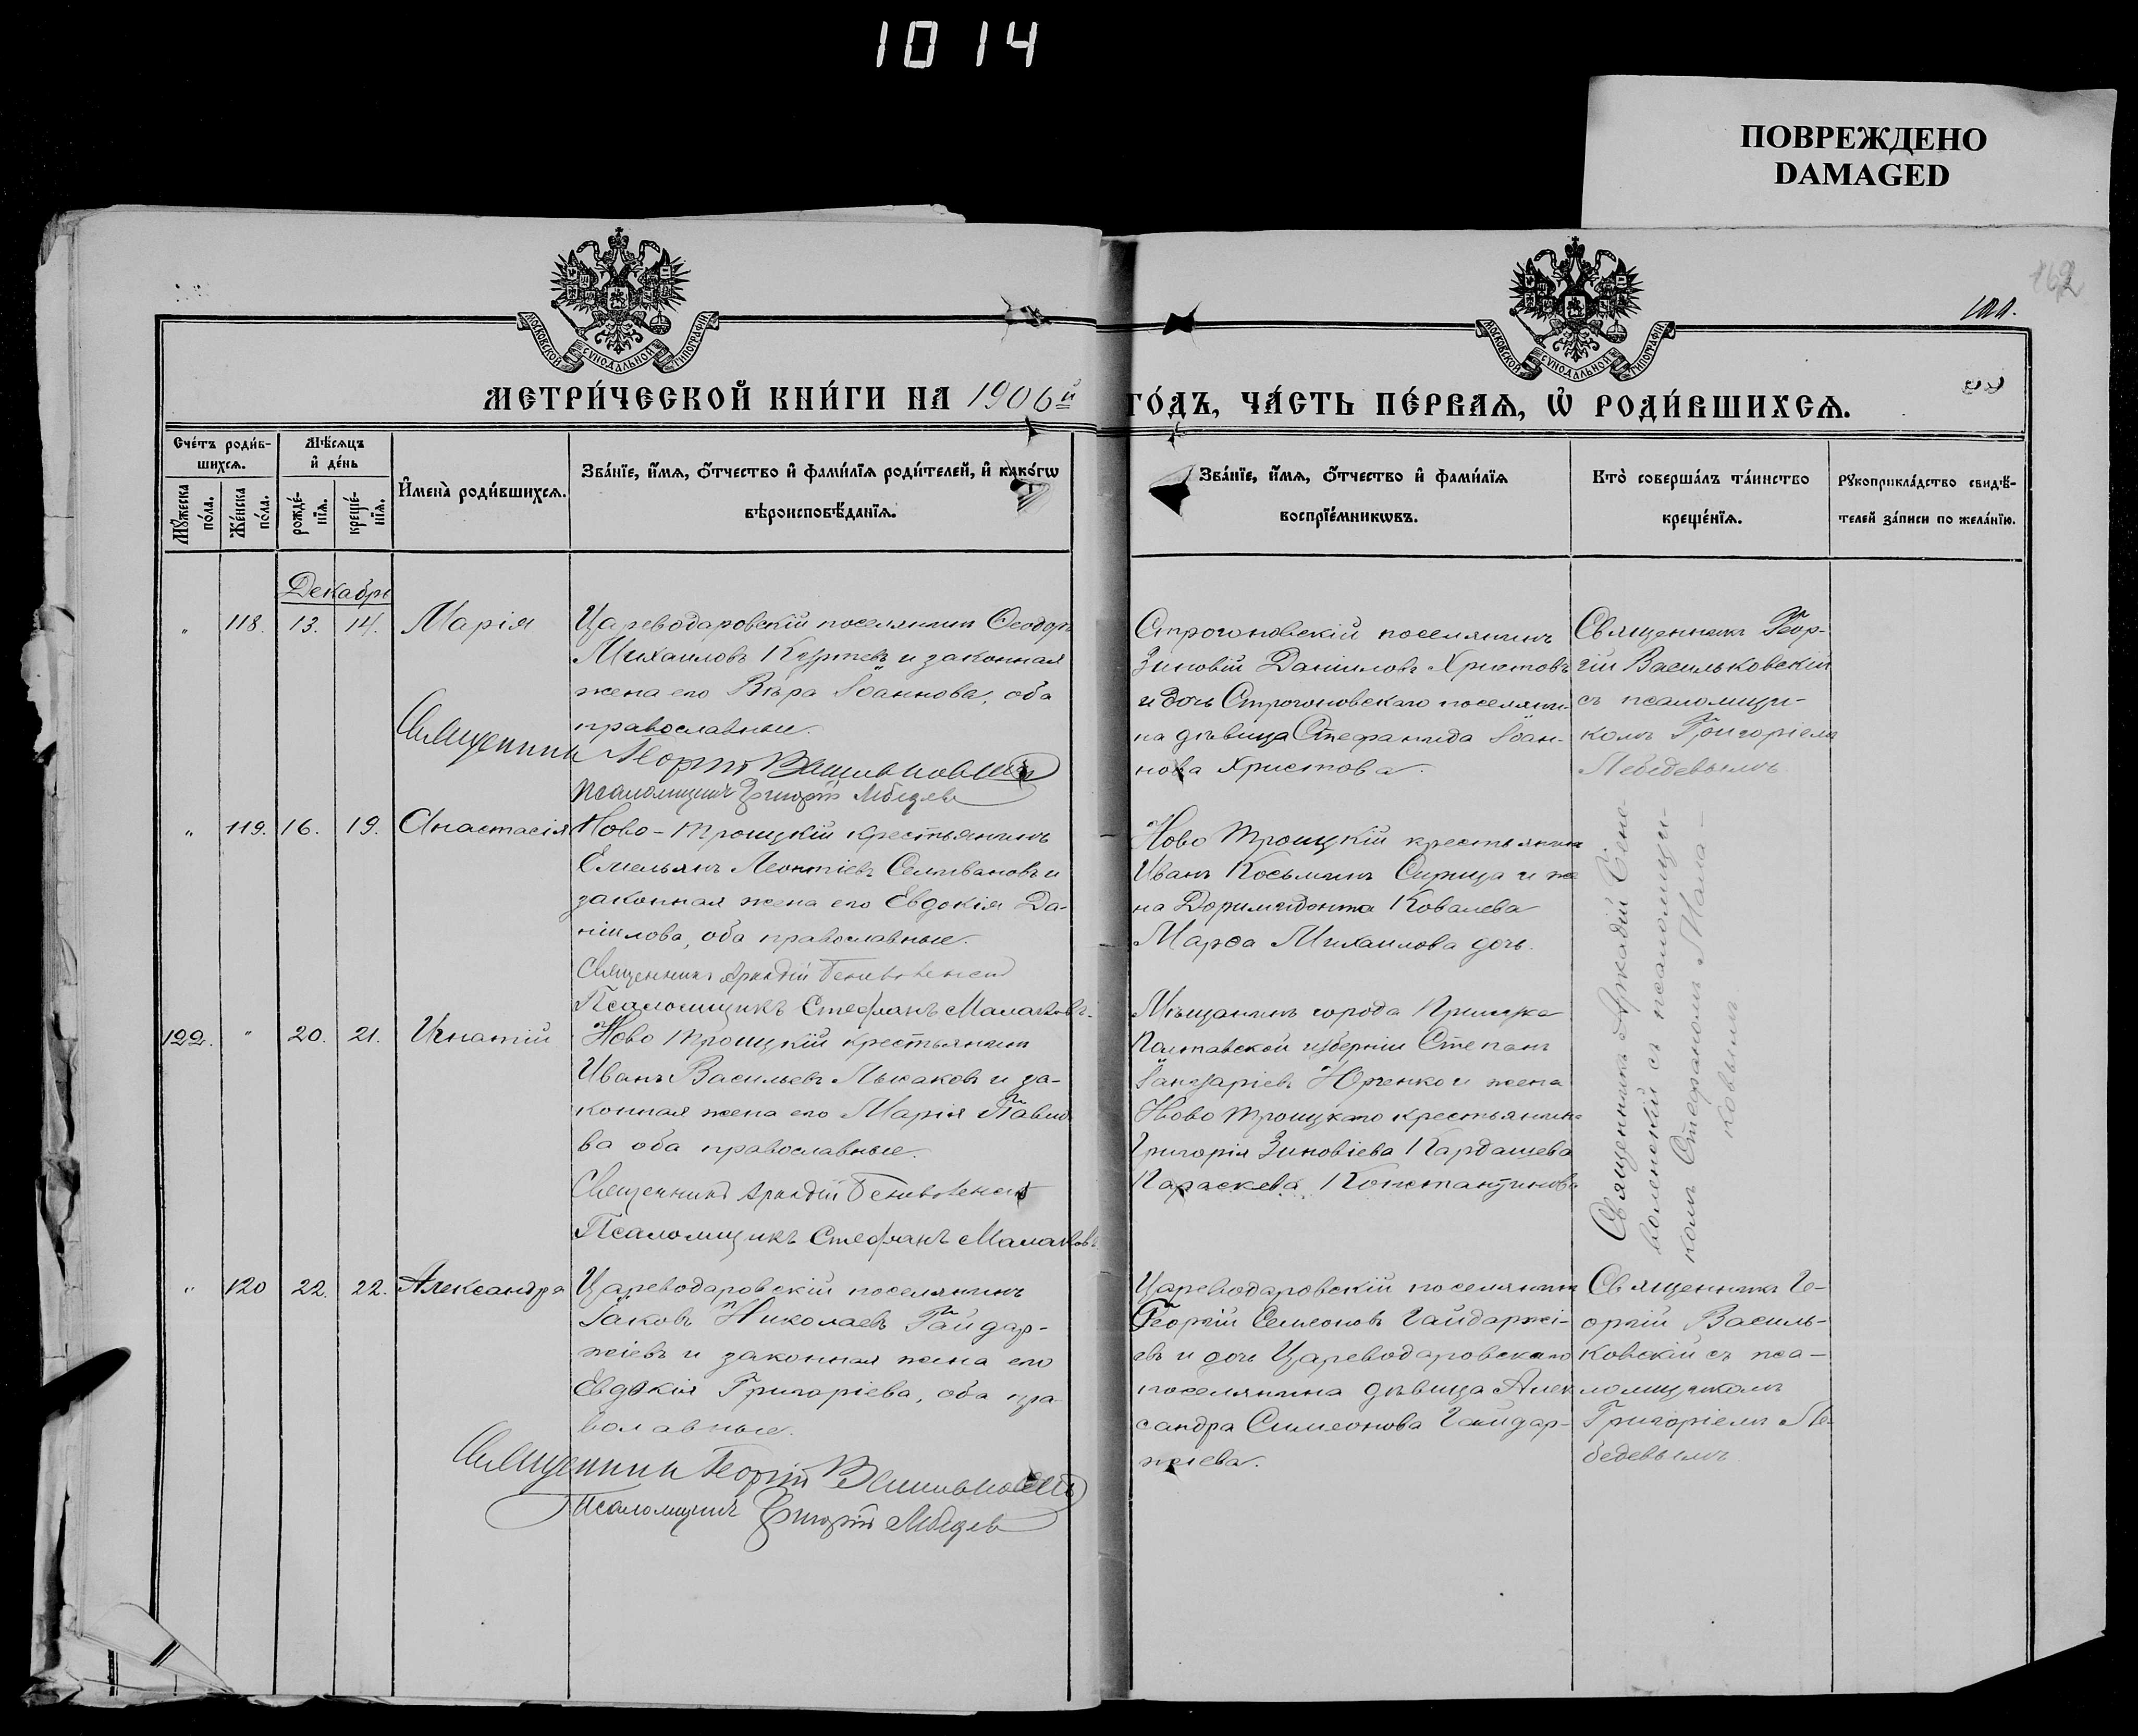 1014
ПОВРЕЖДЕНО
DAMAGED
МОСКОВСКОЙ СУНОДАЛЬНОЙ ТИПОГРАФІИ
МОСКОВСКОЙ СУНОДАЛЬНОЙ ТИПОГРАФІИ
162
59
МЕТРИ́ЧЕСКОЙ КНИ́ГИ НА 1906й
ГО́ДЪ, ЧА́СТЬ ПЕ́РВАѦ, Ѡ҆ РОДИ́ВШИХСѦ.
Сче́тъ роди́в-
шихсѧ.
Мѣ́сѧцъ
и҆ де́нь
Мꙋ́жеска
по́ла.
Же́нска
по́ла.
рожде́-
нїѧ.
креще́-
нїѧ.
И҆мена̀ роди́вшихсѧ.
Зва́нїе, и҆́мѧ, ѻ҆́тчество и҆ фами́лїѧ роди́телей, и҆ како́гѡ
вѣроисповѣ́данїѧ.
Зва́нїе, и҆́мѧ, ѻ҆́тчество и҆ фами́лїѧ
воспрїе́мникѡвъ.
Кто̀ соверша́лъ та́инство
креще́нїѧ.
Рꙋкоприкла́дство свидѣ́-
телей за́писи по жела́нїю.
Декабрь
" 118. 13. 14. Марія
Цареводаровскій поселянинъ Ѳеодоръ
Михаиловъ и законная
жена его Вѣра Іоаннова, оба
православные.
Священникъ Георгій Васильковскій
Псаломщикъ Григорій Лебедевъ
Строгоновскій поселянинъ
Зиновій Даніиловъ Христовъ
и дочь Строгоновскаго поселяни-
на дѣвица Стефанида Іоан-
нова Христова.
Священникъ Геор-
гій Васильковскій
съ псаломщи-
комъ Григоріемъ
Лебедевымъ
" 119. 16. 19. Анастасія
Ново-Троицкій крестьянинъ
Емельянъ Леонтіевъ Селивановъ и
законная жена его Евдокія Да-
ніилова, оба православные.
Священникъ Аркадій
Псаломщикъ Стефанъ Малаховъ.
Ново Троицкій крестьянинъ
Иванъ Косьминъ Сирица и же
на Доримедонта Ковалева
Марѳа Михаилова дочь.
Священникъ Аркадій
съ псаломщи-
комъ Стефаномъ Мала-
ховымъ
122. " 20. 21. Игнатій
Ново Троицкій крестьянинъ
Иванъ Васильевъ Лысаковъ и за-
конная жена его Марія Павло
ва оба православные.
Священникъ Аркадій
Псаломщикъ Стефанъ Малаховъ
Мѣщанинъ города
Полтавской губерніи Степанъ
Юрченко и жена
Ново Троицкаго крестьянина
Григорія Зиновіева Кардашева
Параскева Константинова
" 120 22. 22. Александра
Цареводаровскій поселянинъ
Іаковъ Николаевъ Гайдар-
жіевъ и законная жена его
Евдокія Григоріева, оба пра
вославные.
Священникъ Георгій Васильковскій
Псаломщикъ Григорій Лебедевъ
Цареводаровскій поселянинъ
Георгій Семеоновъ Гайдаржі-
евъ и дочь Цареводаровскаго
поселянина дѣвица Алек
сандра Симеонова Гайдар-
жіева.
Священникъ Ге-
оргій Василь-
ковскій съ пса-
ломщикомъ
Григоріемъ Ле-
бедевымъ